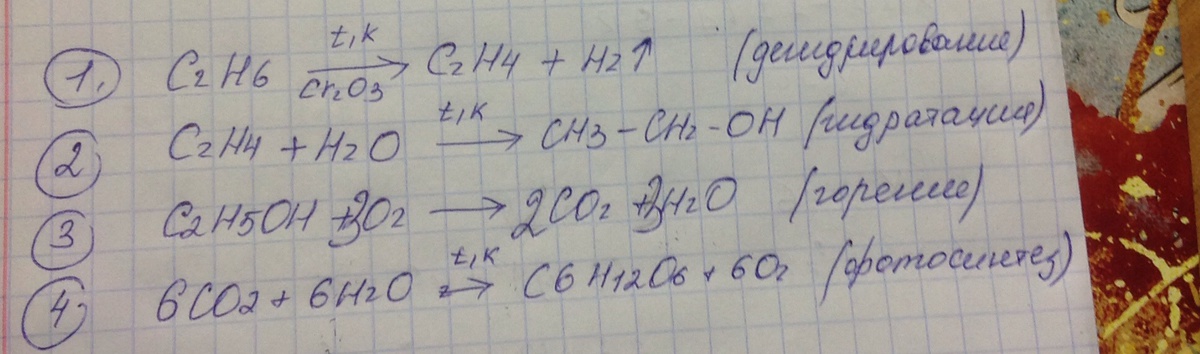 1. C2H6 t,k → Cr2O3 C2H4 + H2↑ (дегидрирование)
2 C2H4 + H2O t,k → CH3-CH2-OH (гидратация)
3 C2H5OH + 3O2 → 2CO2 + 3H2O (горение)
4. 6CO2 + 6H2O t,k → C6H12O6 + 6O2 (фотосинтез)